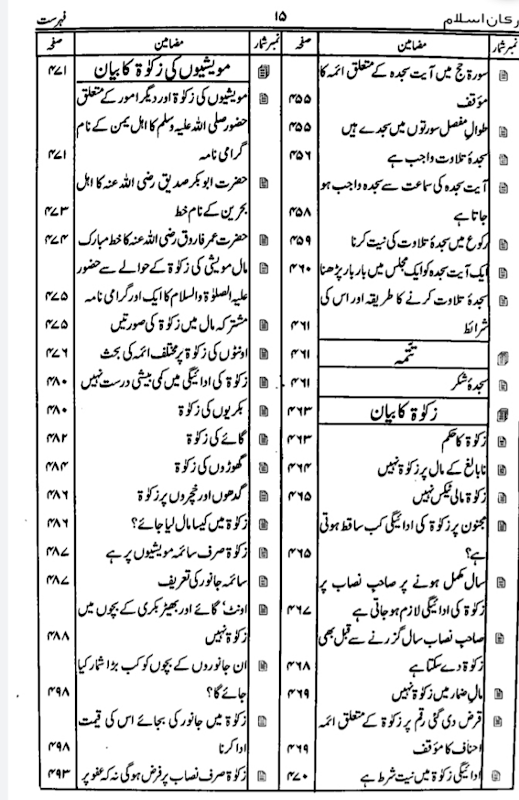 ارکان اسلام ۱۵ فہرست
نمبر شمار مضامین صفحہ
سورۃ حج میں آیت سجدہ کے متعلق ائمہ کا
مؤقف ۴۵۵
طوال مفصل سورتوں میں سجدے ہیں ۴۵۵
سجدۂ تلاوت واجب ہے ۴۵۶
آیت سجدہ کی سماعت سے سجدہ واجب ہو
جاتا ہے ۴۵۸
رکوع میں سجدۂ تلاوت کی نیت کرنا ۴۵۹
ایک آیت سجدہ کو ایک مجلس میں بار بار پڑھنا ۴۶۰
سجدۂ تلاوت کرنے کا طریقہ اور اس کی
شرائط ۴۶۱
تتمہ ۴۶۱
سجدۂ شکر ۴۶۱
زکوٰۃ کا بیان ۴۶۳
زکوٰۃ کا حکم ۴۶۳
نابالغ کے مال پر زکوٰۃ نہیں ۴۶۴
زکوٰۃ مالی ٹیکس نہیں ۴۶۵
مجنون پر زکوٰۃ کی ادائیگی کب ساقط ہوتی
ہے؟ ۴۶۵
سال مکمل ہونے پر صاحب نصاب پر
زکوٰۃ کی ادائیگی لازم ہو جاتی ہے ۴۶۷
صاحب نصاب سال گزرنے سے قبل بھی
زکوٰۃ دے سکتا ہے ۴۶۸
مال ضمار میں زکوٰۃ نہیں ۴۶۹
قرض دی گئی رقم پر زکوٰۃ کے متعلق ائمہ
احناف کا مؤقف ۴۶۹
ادائیگی زکوٰۃ میں نیت شرط ہے ۴۷۰
نمبر شمار مضامین صفحہ
مویشیوں کی زکوٰۃ کا بیان ۴۷۱
مویشیوں کی زکوٰۃ اور دیگر امور کے متعلق
حضور صلی اللہ علیہ وسلم کا اہل یمن کے نام
گرامی نامہ ۴۷۱
حضرت ابوبکر صدیق رضی اللہ عنہ کا اہل
بحرین کے نام خط ۴۷۳
حضرت عمر فاروق رضی اللہ عنہ کا خط مبارک ۴۷۴
مال مویشی کی زکوٰۃ کے حوالے سے حضور
علیہ الصلوٰۃ والسلام کا ایک اور گرامی نامہ ۴۷۵
مشترکہ مال میں زکوٰۃ کی صورتیں ۴۷۵
اونٹوں کی زکوٰۃ پر مختلف ائمہ کی بحث ۴۷۶
زکوٰۃ کی ادائیگی میں کمی بیشی درست نہیں ۴۸۰
بکریوں کی زکوٰۃ ۴۸۰
گائے کی زکوٰۃ ۴۸۲
گھوڑوں کی زکوٰۃ ۴۸۴
گدھوں اور خچروں پر زکوٰۃ ۴۸۶
زکوٰۃ میں کیسا مال لیا جائے؟ ۴۸۶
زکوٰۃ صرف سائمہ مویشیوں پر ہے ۴۸۷
سائمہ جانور کی تعریف ۴۸۷
اونٹ‘ گائے اور بھیڑ بکری کے بچوں میں
زکوٰۃ نہیں ۴۸۸
ان جانوروں کے بچوں کو کب بڑا شمار کیا
جائے گا؟ ۴۹۸
زکوٰۃ میں جانور کی بجائے اس کی قیمت
ادا کرنا ۴۹۸
زکوٰۃ صرف نصاب پر فرض ہو گی نہ کہ عفو پر ۴۹۳